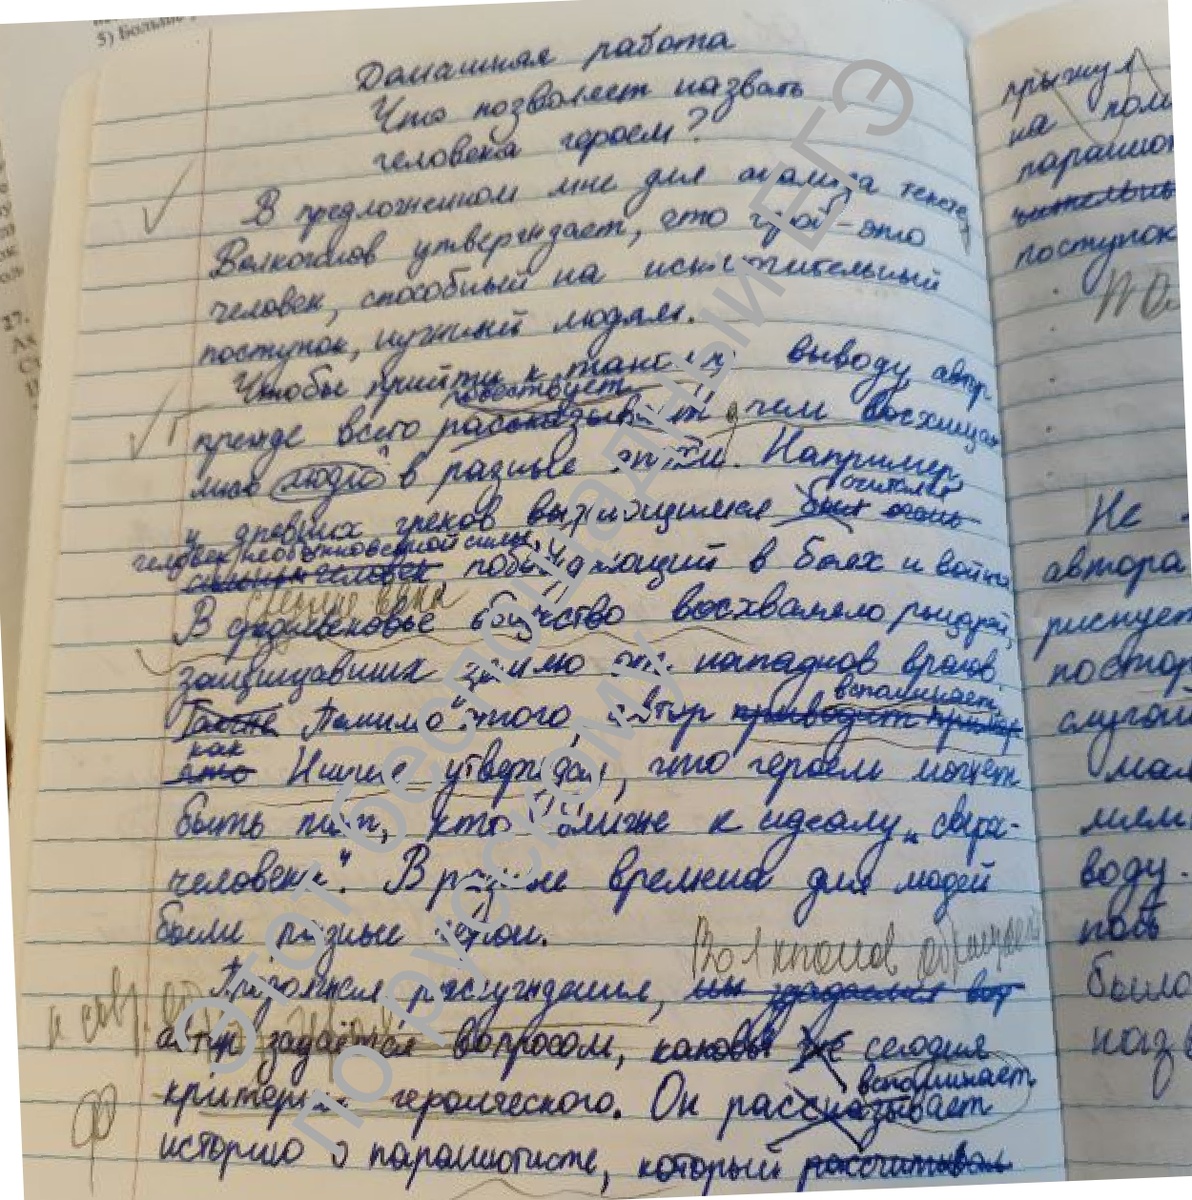 5) Больше
Домашняя работа
Что позволяет назвать
человека героем?
В предложенном мне для анализа тексте
Волкогонов утверждает, что герой - это
человек, способный на исключительный
поступок, нужный людям.
Чтобы прийти к такому выводу, автор
повествует
прежде всего рассказывает о чем восхища-
лись люди в разные эпохи. Например
считался
у древних греков выдающимся был
человек необыкновенной силы,
сильный человек, побеждающий в боях и войнах
средние века
В средневековье общество восхваляло рыцарей,
защищавших землю от нападков врагов.
вспоминает,
Также Помимо этого, автор приводит пример
как
что Ницше утверждал, что героем может
быть тот, кто ближе к идеалу „сверх-
человека". В разные времена для людей
были разные герои.
Волкогонов обращается
Продолжая рассуждения, мы
автор задаётся вопросом, каковы же сегодня
вспоминает
критерии героического. Он рассказывает
историю о парашютисте, который рассчитывал
прыгнул
на
поступок
Не
автора
рисует
случай
воду.
было
назв
Этот беспощадный ЕГЭ
по русскому